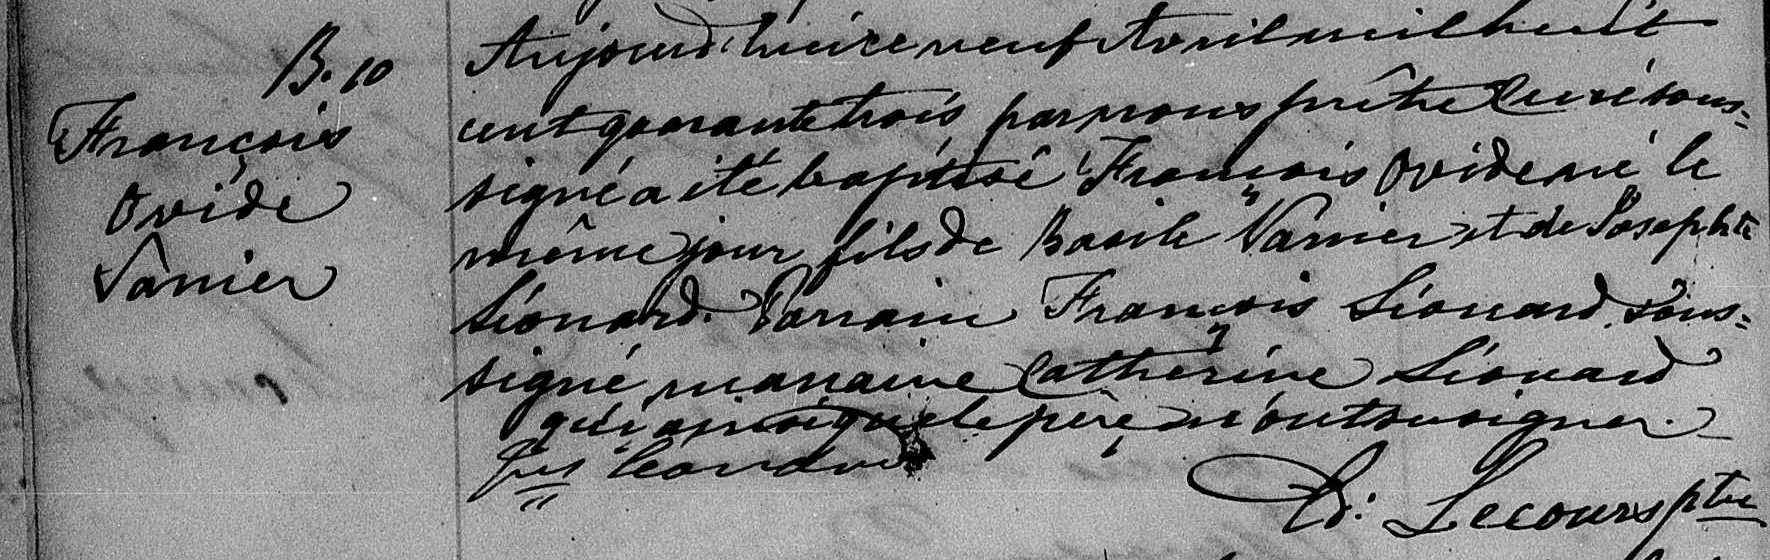 B. 10
François
Ovide
Vanier
Aujourd'hui ce neuf Avril mil huit
cent quarante trois par nous prêtre Curé sous=
signé a été baptisé François Ovide né le
même jour fils de Basile Vanier et de Josephte
Léonard. Parrain François Léonard sous=
signé maraine Catherine Léonard
qui ainsi que le père n'ont su signer.
frs
Ed: Lecours ptre